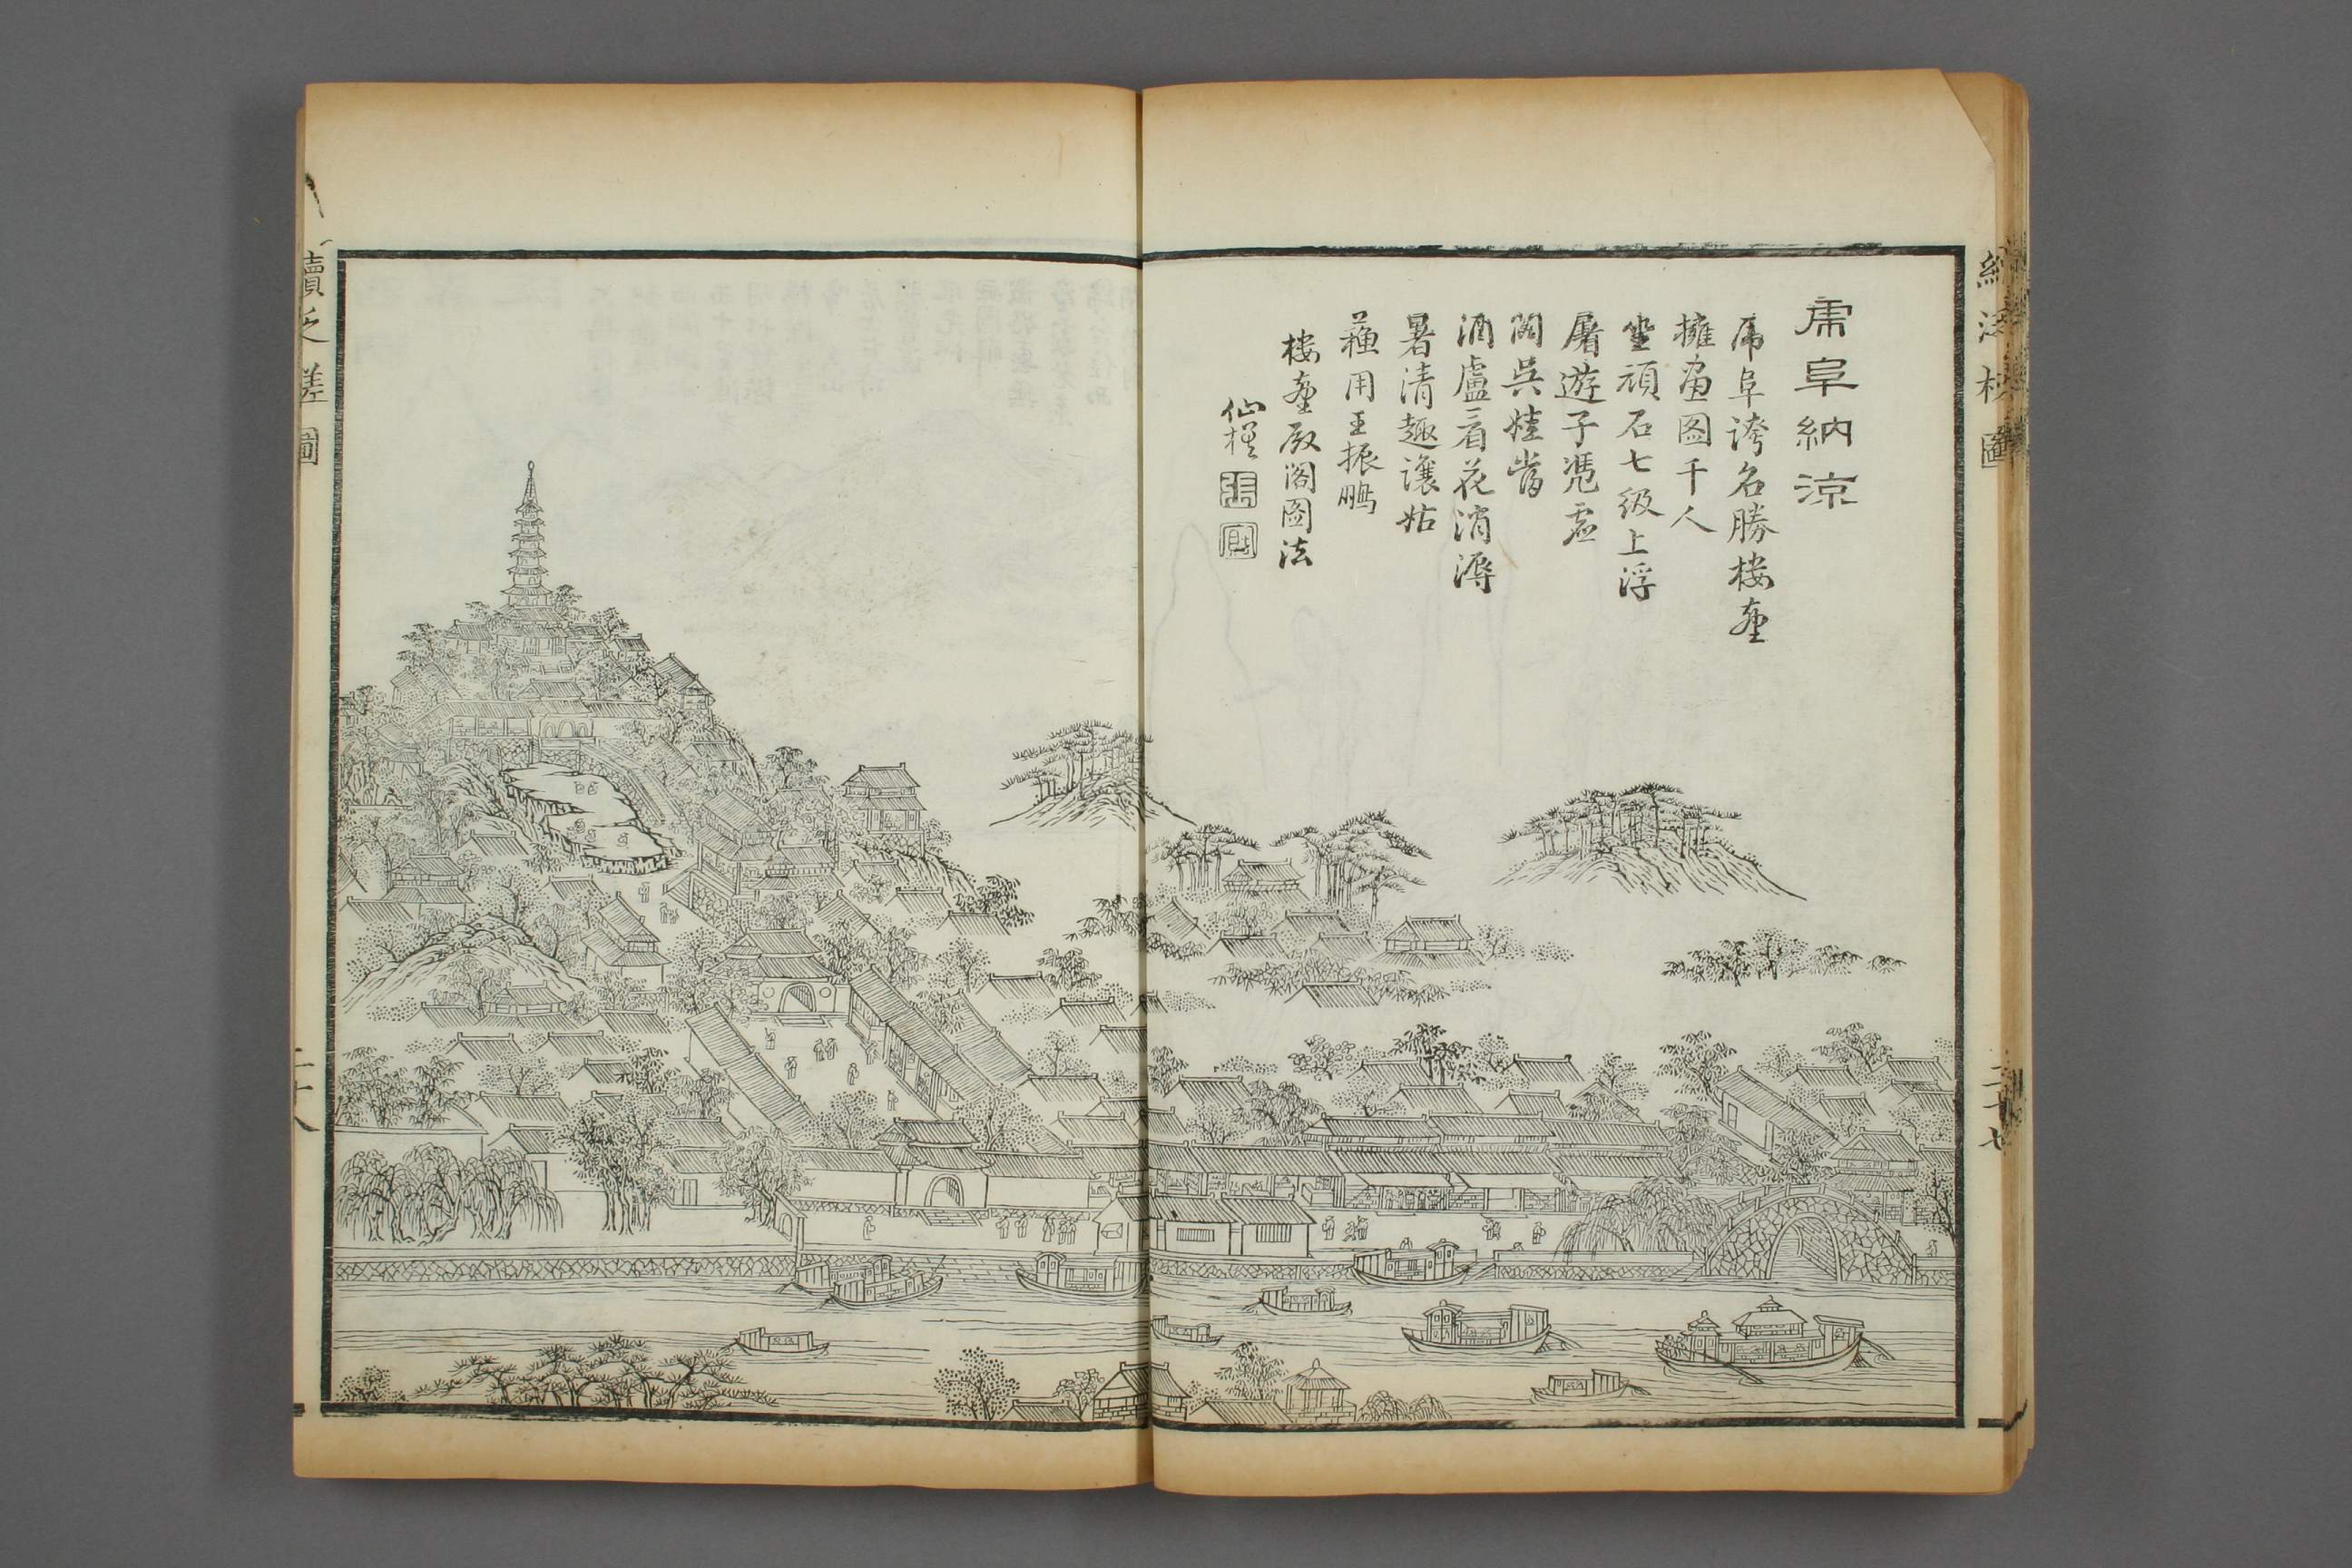 續泛槎圖
二十七
虎阜納涼
虎阜誇名勝楼臺
擁畫图千人
坐頑石七級上浮
屠遊子凴虛
閣吳娃當
酒盧看花消溽
暑清趣讓姑
蘇用王振鵬
楼臺殿閣图法
仙槎
張
寶
續泛槎圖
二十八